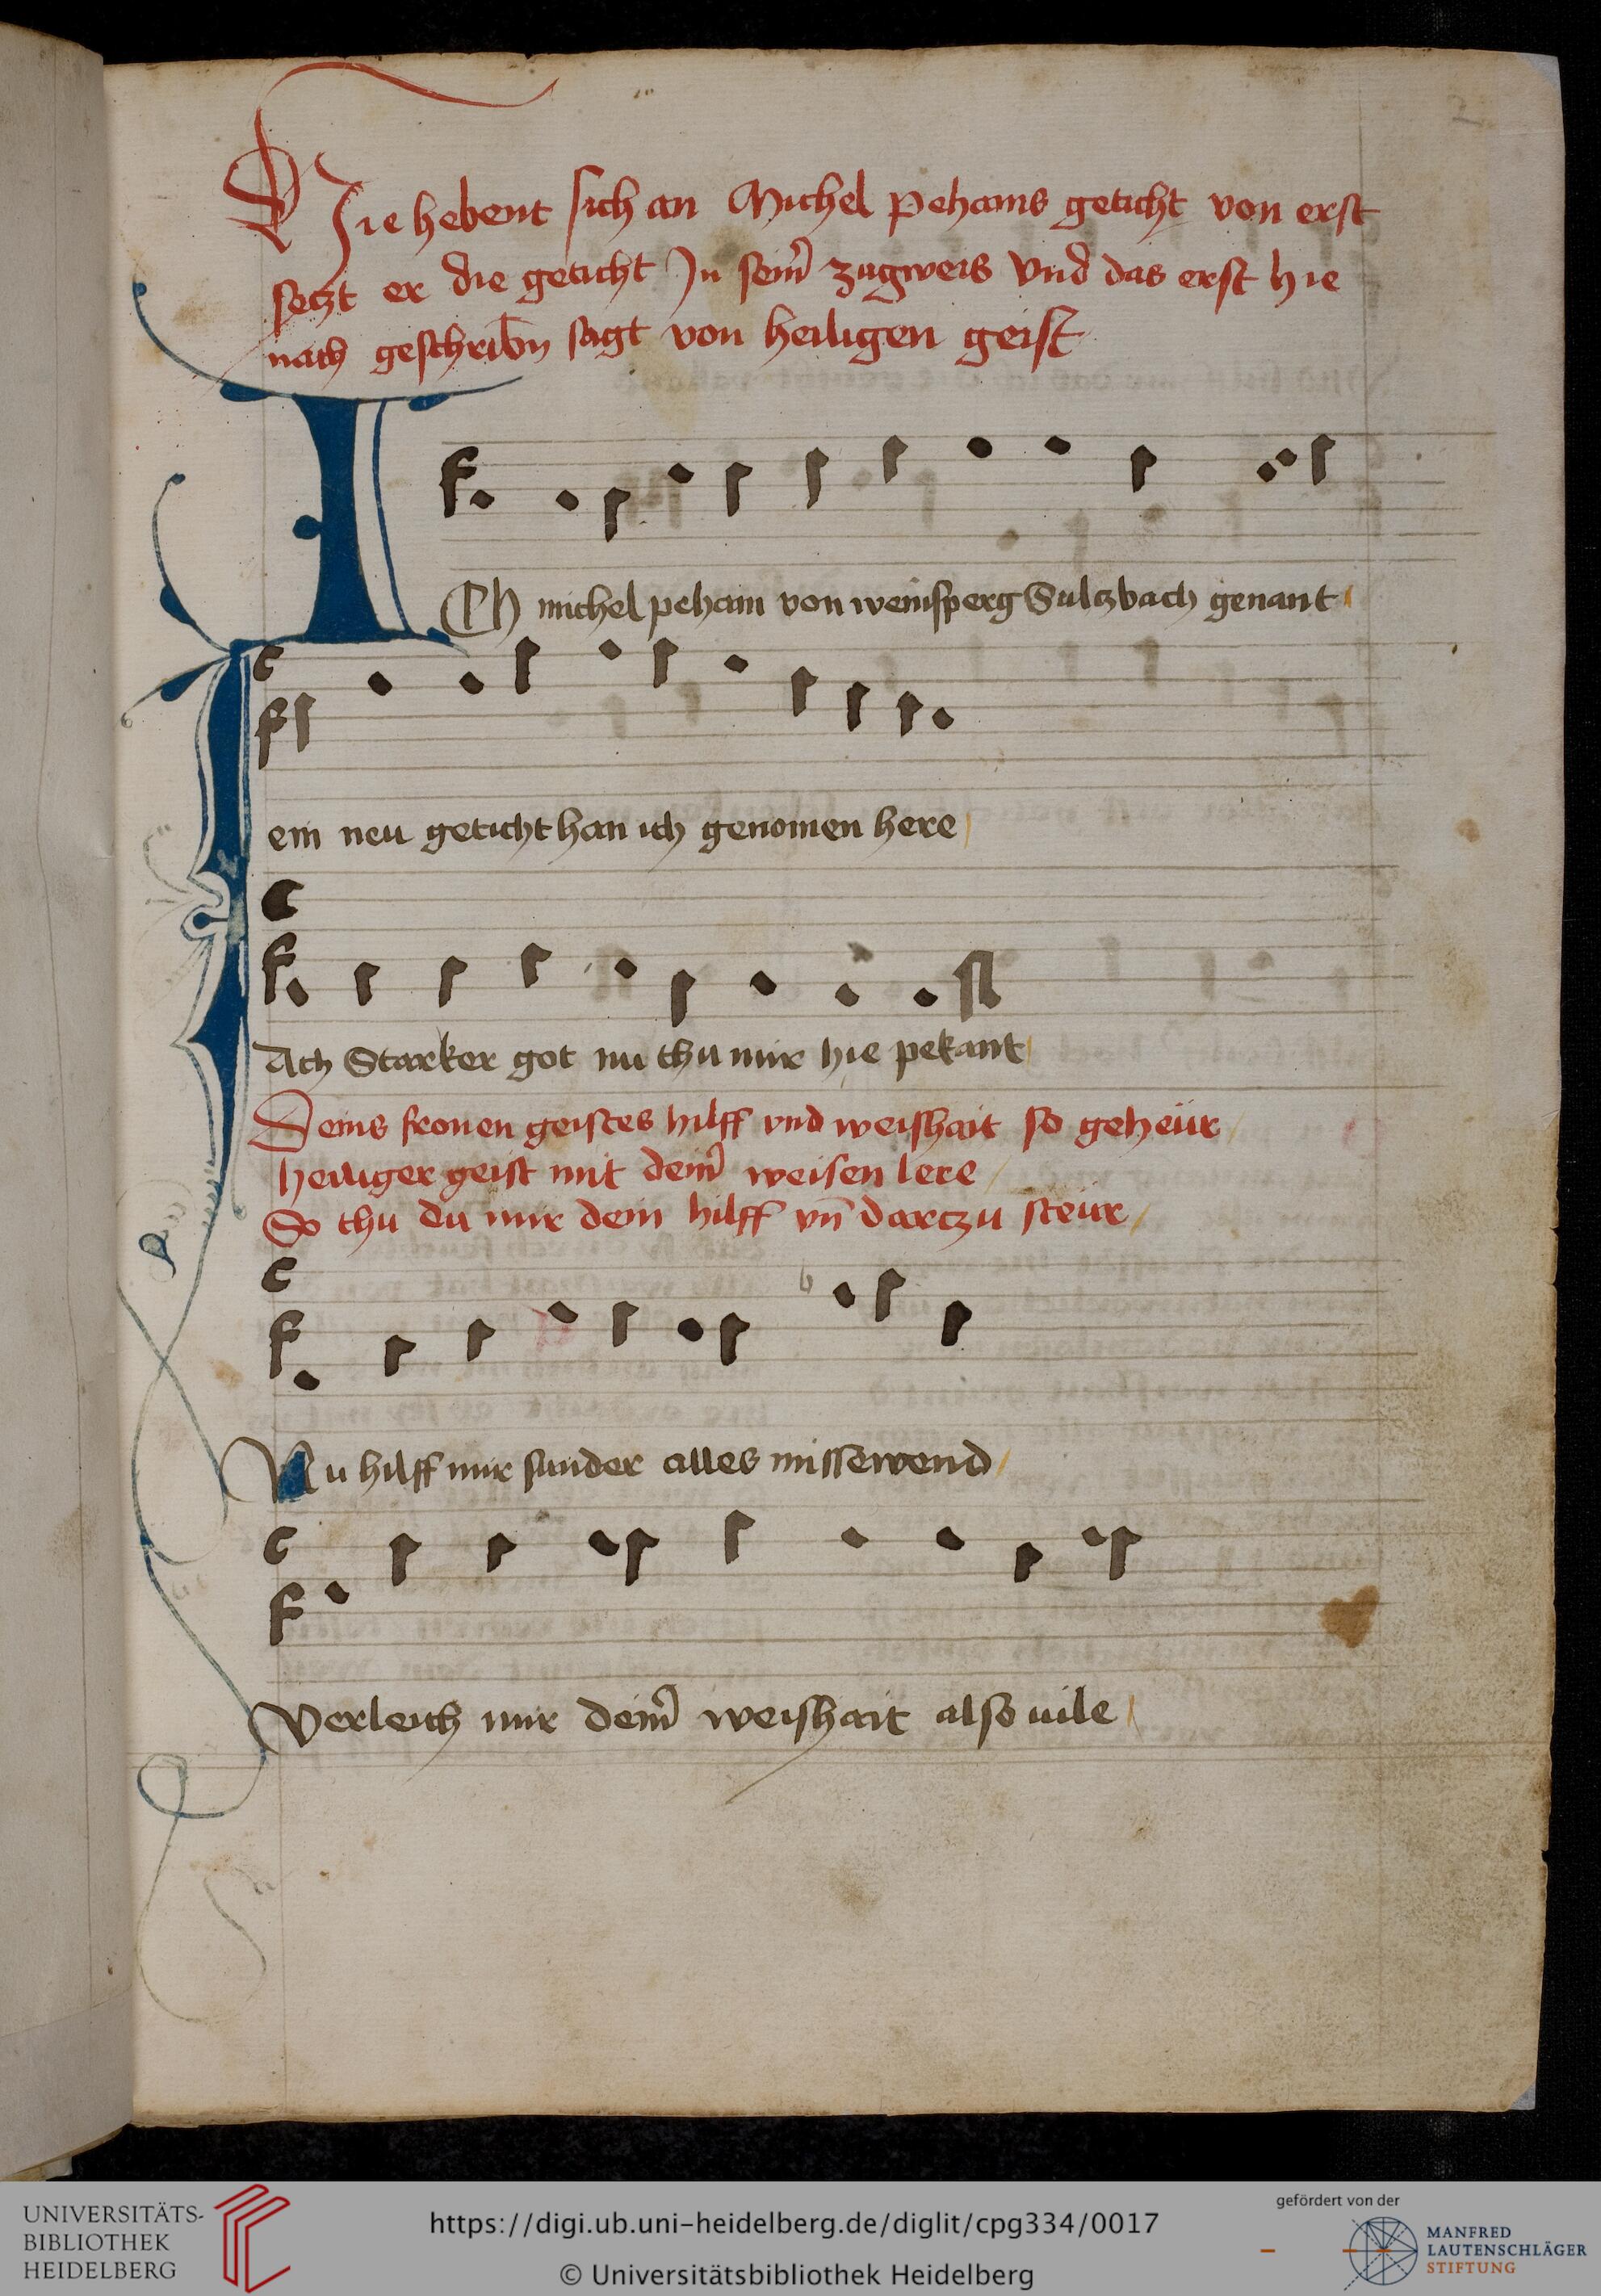 2
Hie hebent sich an Michel Pehams geticht von erst
seczt er die geticht Jn sein̄ zugweis Vnd das erst hie
nach geschribn̄ sagt von heiligen geist
ICH michel peham von weinsperg Sulczbach genant
ein neu geticht han ich genomen here
Ach Starker got nu thu mir hie pekant
Deins fronen geistes hilff vnd weishait so geheür
heiliger geist mit dein̄ weisen lere
So thu du mir dein hilff vn̄ darczu steür
Nu hilff mir sunder alles missewend
Verleich mir dein̄ weishait also uile
UNIVERSITÄTS-
BIBLIOTHEK
HEIDELBERG
https://digi.ub.uni-heidelberg.de/diglit/cpg334/0017
© Universitätsbibliothek Heidelberg
gefördert von der
MANFRED
LAUTENSCHLÄGER
STIFTUNG